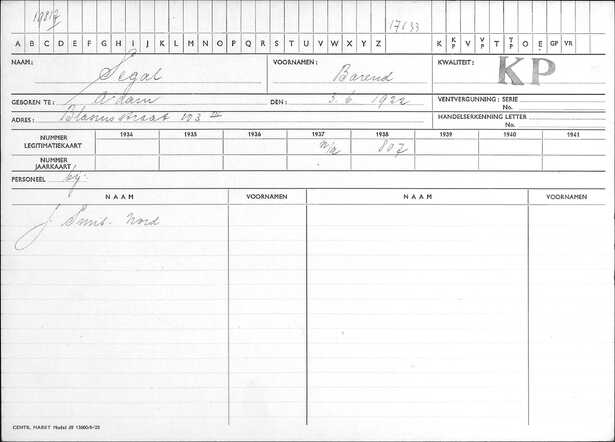 19817
17633
A B C D E F G H I J K L M N O P Q R S T U V W X Y Z K K/P V V/P T T/P O E GP VR
NAAM: Segal VOORNAMEN: Barend KWALITEIT: KP
GEBOREN TE: A'dam DEN: 3.6.1922 VENTVERGUNNING: SERIE No.
ADRES: Blasiusstraat 113 II HANDELSERKENNING LETTER No.
NUMMER LEGITIMATIEKAART 1934 1935 1936 1937 1938 1939 1940 1941
n/a 807
NUMMER JAARKAART
PERSONEEL bij:
NAAM VOORNAMEN NAAM VOORNAMEN
J. Smit-Nord
CENTR. MARKT Model 59